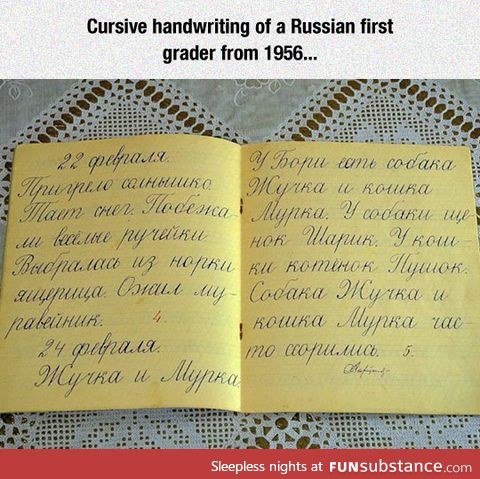 Cursive handwriting of a Russian first
grader from 1956...
22 февраля.
Пригрело солнышко.
Тает снег. Побежа-
ли весёлые ручейки
Выбралась из норки
ящерица. Ожил му-
равейник. 4.
24 февраля.
Жучка и Мурка.
У Бори есть собака
Жучка и кошка
Мурка. У собаки ще-
нок Шарик. У кош-
ки котёнок Пушок.
Собака Жучка и
кошка Мурка час-
то ссорились. 5.
Sleepless nights at FUNsubstance.com